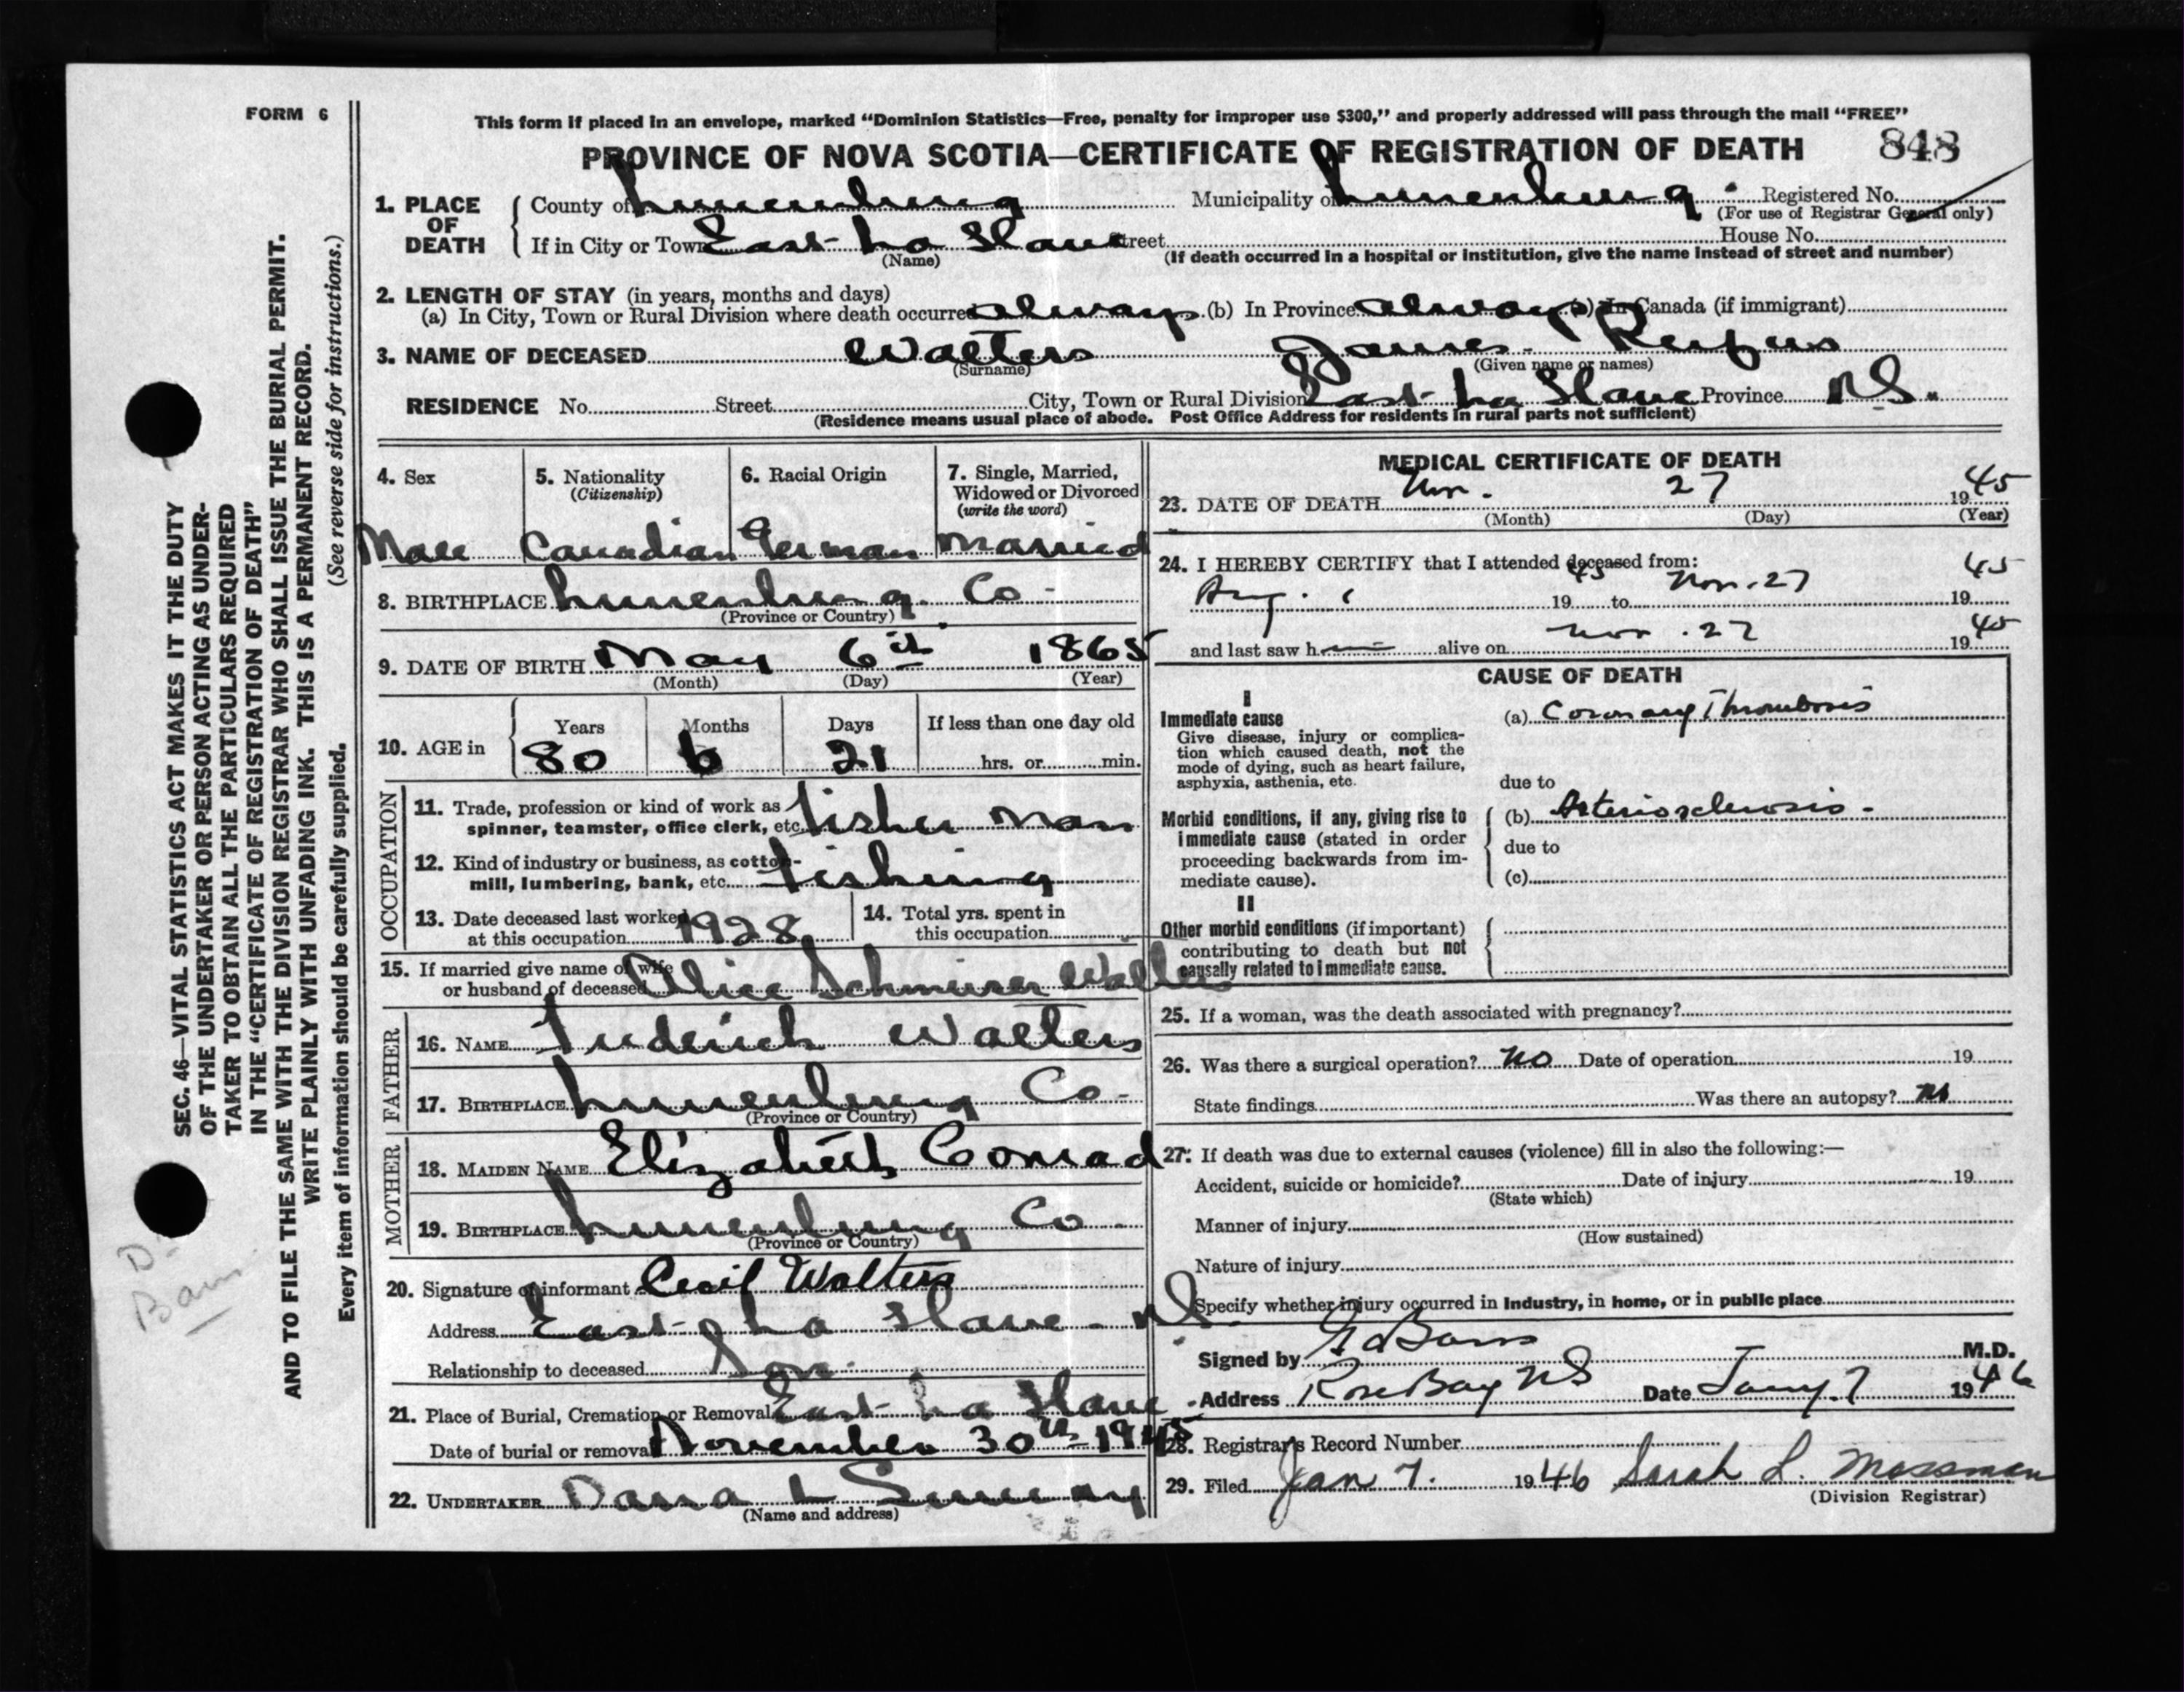 FORM 6
This form if placed in an envelope, marked “Dominion Statistics—Free, penalty for improper use $300,” and properly addressed will pass through the mail “FREE”
PROVINCE OF NOVA SCOTIA—CERTIFICATE OF REGISTRATION OF DEATH 848
1. PLACE OF DEATH County of Lunenburg Municipality of Lunenburg Registered No.
(For use of Registrar General only)
If in City or Town East La Have Street House No.
(Name) (If death occurred in a hospital or institution, give the name instead of street and number)
2. LENGTH OF STAY (in years, months and days)
(a) In City, Town or Rural Division where death occurred always (b) In Province always (c) In Canada (if immigrant)
3. NAME OF DECEASED Walters James Rufus
(Surname) (Given name or names)
RESIDENCE No. Street City, Town or Rural Division East La Have Province N.S.
(Residence means usual place of abode. Post Office Address for residents in rural parts not sufficient)
4. Sex 5. Nationality (Citizenship) 6. Racial Origin 7. Single, Married, Widowed or Divorced (write the word)
Male Canadian German Married
8. BIRTHPLACE Lunenburg Co
(Province or Country)
9. DATE OF BIRTH May 6th 1865
(Month) (Day) (Year)
10. AGE in Years Months Days If less than one day old
80 6 21 hrs. or min.
OCCUPATION
11. Trade, profession or kind of work as
spinner, teamster, office clerk, etc. fisher man
12. Kind of industry or business, as cotton-
mill, lumbering, bank, etc. fishing
13. Date deceased last worked
at this occupation 1928
14. Total yrs. spent in
this occupation
15. If married give name of wife
or husband of deceased Alice Walters
FATHER
16. NAME Frederick Walters
17. BIRTHPLACE Lunenburg Co
(Province or Country)
MOTHER
18. MAIDEN NAME Elizabeth Conrad
19. BIRTHPLACE Lunenburg Co
(Province or Country)
20. Signature of informant Cecil Walters
Address East La Have N.S.
Relationship to deceased Son
21. Place of Burial, Cremation or Removal East La Have
Date of burial or removal November 30th 1945
22. UNDERTAKER Dana L Sweeny
(Name and address)
MEDICAL CERTIFICATE OF DEATH
23. DATE OF DEATH Nov. 27 1945
(Month) (Day) (Year)
24. I HEREBY CERTIFY that I attended deceased from:
Aug. 1 1945 to Nov. 27 1945
and last saw him alive on Nov. 27 1945
CAUSE OF DEATH
I
Immediate cause
Give disease, injury or complica-
tion which caused death, not the
mode of dying, such as heart failure,
asphyxia, asthenia, etc.
(a) Coronary Thrombosis
due to
Morbid conditions, if any, giving rise to
immediate cause (stated in order
proceeding backwards from im-
mediate cause).
(b) Arteriosclerosis -
due to
(c)
II
Other morbid conditions (if important)
contributing to death but not
causally related to immediate cause.
25. If a woman, was the death associated with pregnancy?
26. Was there a surgical operation? No Date of operation 19
State findings Was there an autopsy? No
27. If death was due to external causes (violence) fill in also the following:—
Accident, suicide or homicide? Date of injury 19
(State which)
Manner of injury
(How sustained)
Nature of injury
Specify whether injury occurred in industry, in home, or in public place
Signed by M.D.
Address Rose Bay NS Date Jany. 7 1946
28. Registrar's Record Number
29. Filed Jan 7. 1946 Sarah L. Mossman
(Division Registrar)
SEC. 46—VITAL STATISTICS ACT MAKES IT THE DUTY
OF THE UNDERTAKER OR PERSON ACTING AS UNDER-
TAKER TO OBTAIN ALL THE PARTICULARS REQUIRED
IN THE “CERTIFICATE OF REGISTRATION OF DEATH”
AND TO FILE THE SAME WITH THE DIVISION REGISTRAR WHO SHALL ISSUE THE BURIAL PERMIT.
WRITE PLAINLY WITH UNFADING INK. THIS IS A PERMANENT RECORD.
(See reverse side for instructions.)
Every item of information should be carefully supplied.